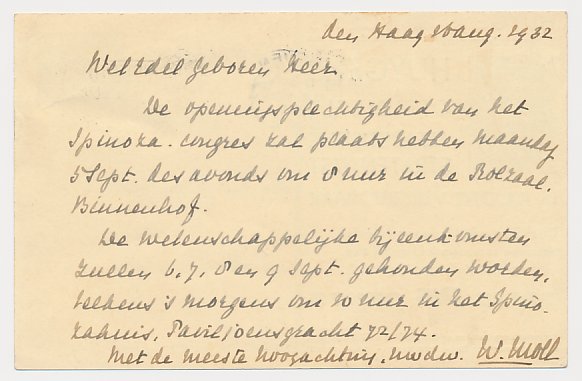 den Haag 16 aug. 1932
Weledel geboren Heer
De openingsplechtigheid van het
Spinoza-congres zal plaats hebben Maandag
5 Sept. des avonds om 8 uur in de Rolzaal,
Binnenhof.
De wetenschappelijke bijeenkomsten
zullen 6, 7, 8 en 9 Sept. gehouden worden,
telkens 's morgens om 10 uur in het Spino-
zahuis, Paviljoensgracht 72/74.
Met de meeste hoogachting, uwdw. W. Moll